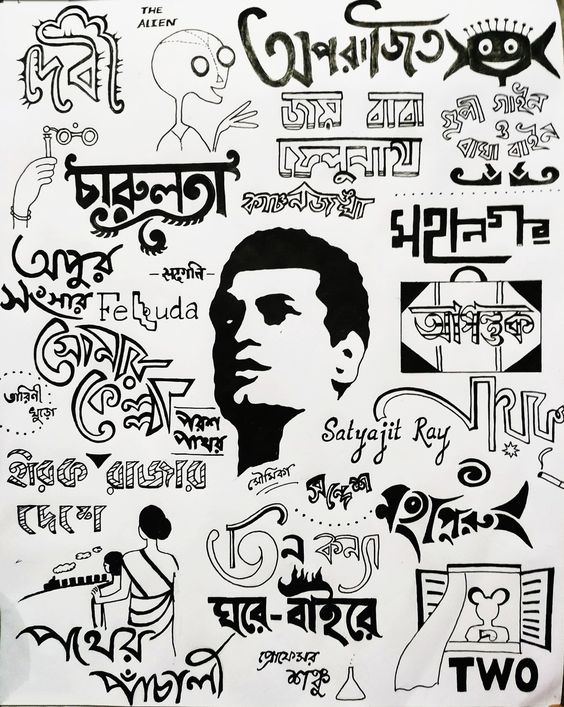 দেবী
THE
ALIEN
অপরাজিত
জয় বাবা
ফেলুনাথ
গুপী গাইন
ও
বাঘা বাইন
চারুলতা
কাঞ্চনজঙ্ঘা
মহানগর
অপুর
সংসার
সদ্গতি
Feluda
আগন্তুক
সোনার
কেল্লা
তারিণী
খুড়ো
পরশ
পাথর
Satyajit Ray
নায়ক
হীরক রাজার
দেশে
মৌমিকা
সন্দেশ
মহাপুরুষ
তিন কন্যা
ঘরে-বাইরে
পথের
পাঁচালী
প্রোফেসর
শঙ্কু
TWO